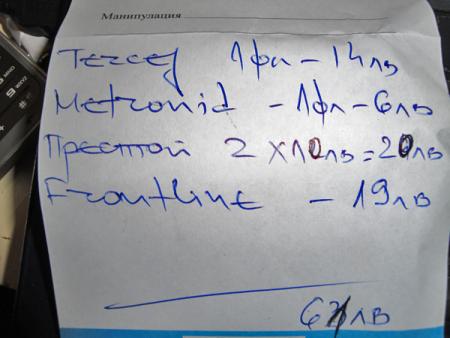 Манипулация
Tercef 1фл - 14лв
Metronid - 1фл - 6лв
Престой 2 х 10лв = 20лв
Frontline - 19лв
лв